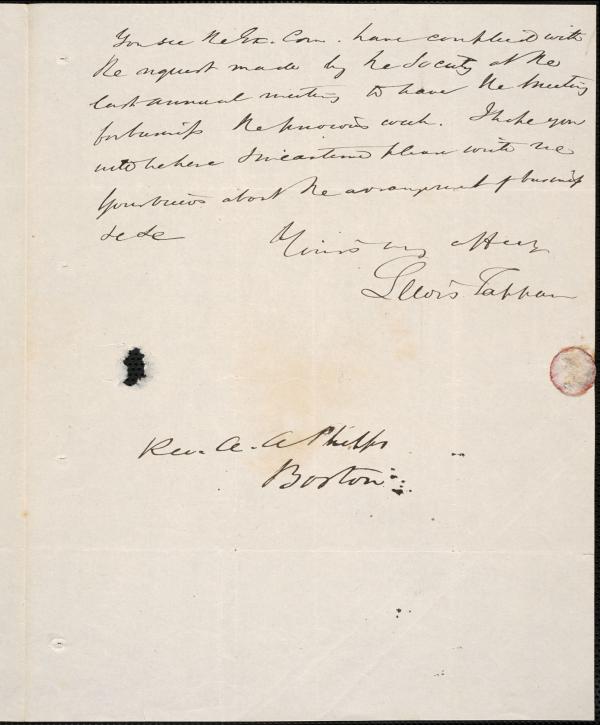 You see the Ex. Com. have complied with
the request made by the Society at the
last annual meeting to have the meeting
for business the previous week. I hope you
will be here & in meantime please write me
your views about the arrangement of business
&c &c
Yours very affecy
Lewis Tappan
Rev. A. A Phelps
Boston